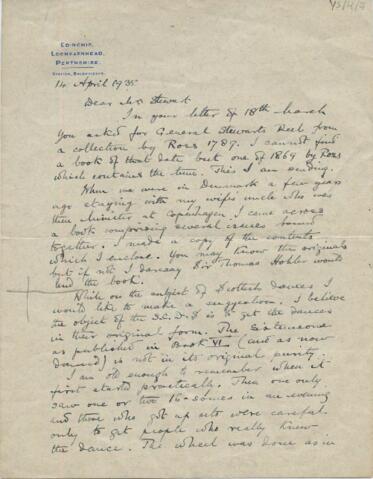 EDINCHIP,
LOCHEARNHEAD,
PERTHSHIRE.
STATION, BALQUHIDDER.
14 April 1935
Dear Mr Stewart
In your letter of 18th March
You asked for General Stewarts Reel from
a collection by Ross 1789. I cannot find
a book of that date but one of 1869 by Ross
which contains the tune. This I am sending.
When we were in Denmark a few years
ago staying with my wifes uncle who was
then Minister at Copenhagen I came across
a book comprising several issues bound
together. I made a copy of the contents
which I enclose. You may know the originals
but if not I daresay Sir Thomas Hohler would
lend the book.
While on the subject of Scottish dances I
would like to make a suggestion. I believe
the object of the S.C.D.S is to get the dances
in their original form. The Sixteensome
as published in Book VI (and as now
danced) is not in its original purity.
I am old enough to remember when it
first started practically. Then one only
saw one or two 16-somes in an evening
and those who got up sets were careful
only to get people who really knew
the dance. The wheel was done as in